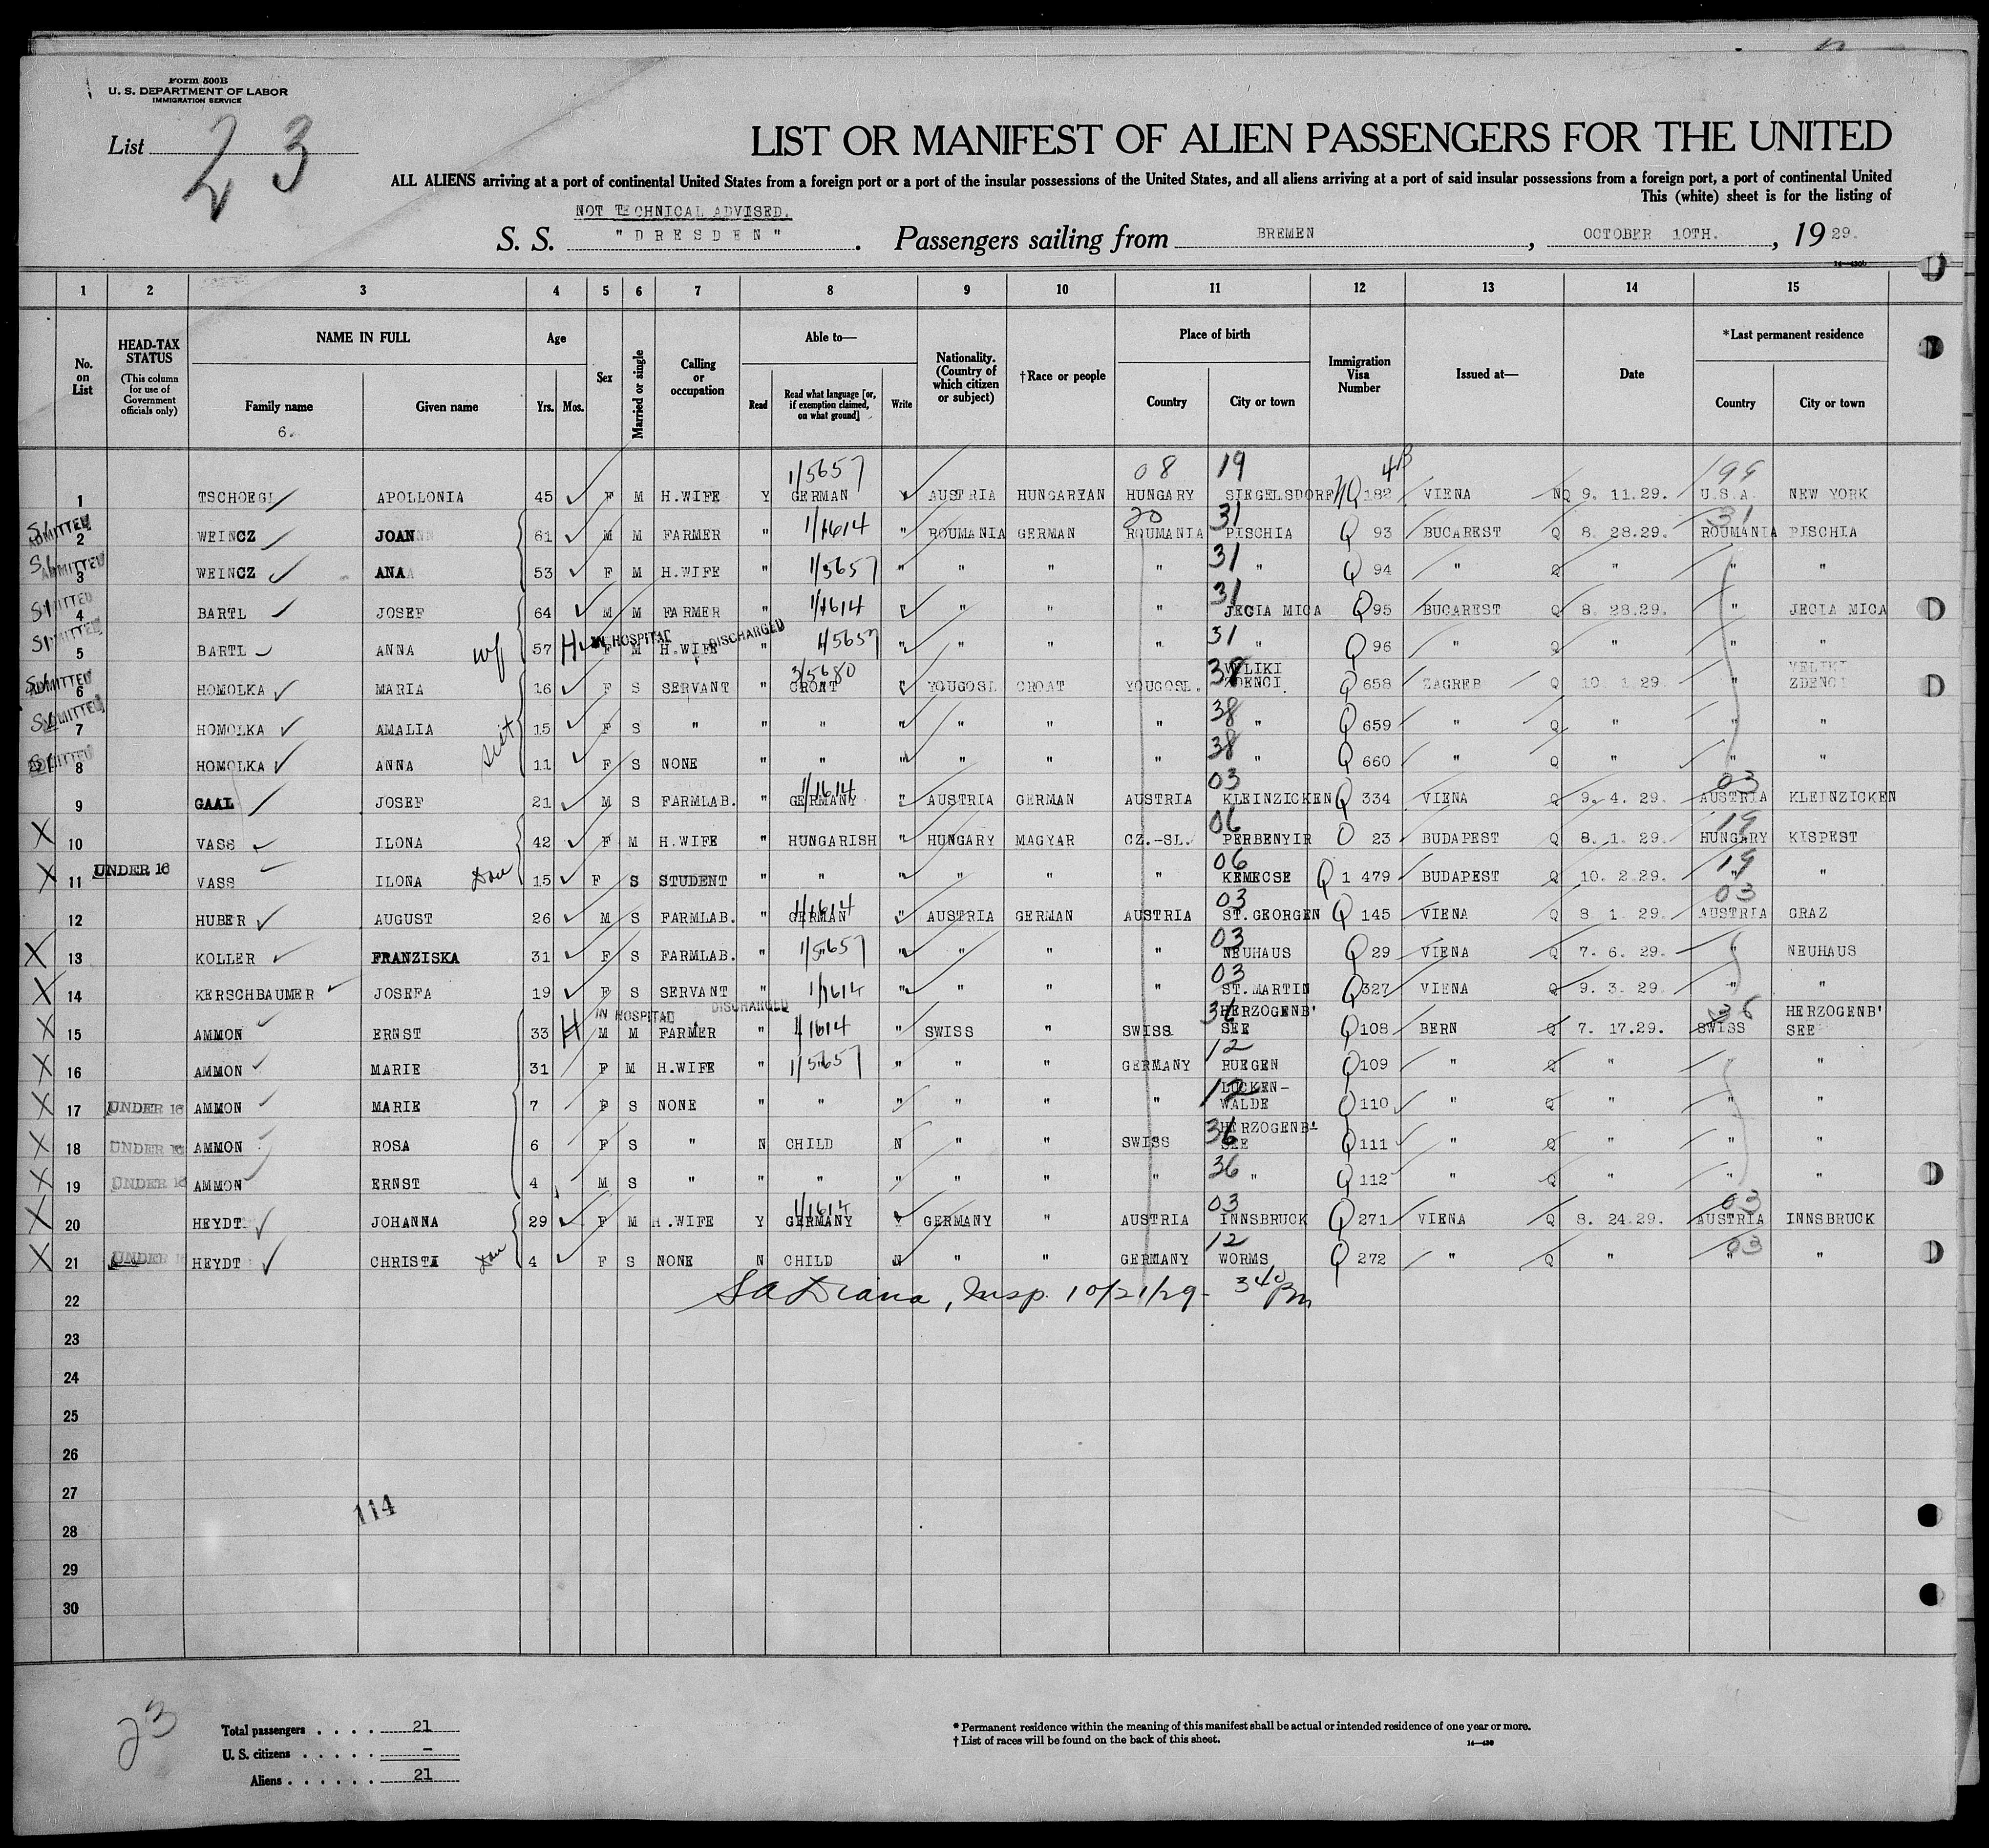 Form 500B
U. S. DEPARTMENT OF LABOR
IMMIGRATION SERVICE
List 23
LIST OR MANIFEST OF ALIEN PASSENGERS FOR THE UNITED
ALL ALIENS arriving at a port of continental United States from a foreign port or a port of the insular possessions of the United States, and all aliens arriving at a port of said insular possessions from a foreign port, a port of continental United
This (white) sheet is for the listing of
NOT TECHNICAL ADVISED.
S. S. "DRESDEN". Passengers sailing from BREMEN, OCTOBER 10TH., 1929.
14—430b
1 2 3 4 5 6 7 8 9 10 11 12 13 14 15
No. on List
HEAD-TAX STATUS (This column for use of Government officials only)
NAME IN FULL
Family name
Given name
6.
Age
Yrs. Mos.
Sex
Married or single
Calling or occupation
Able to—
Read
Read what language [or, if exemption claimed, on what ground]
Write
Nationality. (Country of which citizen or subject)
†Race or people
Place of birth
Country
City or town
Immigration Visa Number
Issued at—
Date
*Last permanent residence
Country
City or town
1/5657 08 19 4B 199
1 TSCHOEGL APOLLONIA 45 F M H.WIFE Y GERMAN Y AUSTRIA HUNGARIAN HUNGARY SIEGELSDORF NQ 182 VIENA NQ 9. 11.29. U.S.A. NEW YORK
S1 ADMITTED 1/1614 20 31 31
2 WEINCZ JOAN 61 M M FARMER " " ROUMANIA GERMAN ROUMANIA PISCHIA Q 93 BUCAREST Q 8. 28.29. ROUMANIA PISCHIA
S1 ADMITTED 1/5657 31
3 WEINCZ ANA 53 F M H.WIFE " " " " " " Q 94 " Q " " "
S1 ADMITTED 1/1614 31
4 BARTL JOSEF 64 M M FARMER " " " " " JECIA MICA Q 95 BUCAREST Q 8. 28.29. " JECIA MICA
S1 ADMITTED wf H IN HOSPITAL DISCHARGED 1/5657 31
5 BARTL ANNA 57 F M H.WIFE " " " " " " Q 96 " Q " " "
S1 ADMITTED 3/5680 38
6 HOMOLKA MARIA 16 F S SERVANT " CROAT " YOUGOSL CROAT YOUGOSL. VELIKI ZDENCI. Q 658 ZAGREB Q 10. 1.29. " VELIKI ZDENCI
S1 ADMITTED sist 38
7 HOMOLKA AMALIA 15 F S " " " " " " " " Q 659 " Q " " "
S1 ADMITTED 38
8 HOMOLKA ANNA 11 F S NONE " " " " " " " Q 660 " Q " " "
1/1614 03 03
9 GAAL JOSEF 21 M S FARMLAB. " GERMANY " AUSTRIA GERMAN AUSTRIA KLEINZICKEN Q 334 VIENA Q 9. 4. 29. AUSTRIA KLEINZICKEN
06 19
X 10 VASS ILONA 42 F M H.WIFE " HUNGARISH " HUNGARY MAGYAR CZ.-SL. PERBENYIR Q 23 BUDAPEST Q 8. 1. 29. HUNGARY KISPEST
UNDER 16 Dau 06 19
X 11 VASS ILONA 15 F S STUDENT " " " " " " KEMECSE Q 1 479 BUDAPEST Q 10. 2.29. " "
1/1614 03 03
12 HUBER AUGUST 26 M S FARMLAB. " GERMAN " AUSTRIA GERMAN AUSTRIA ST.GEORGEN Q 145 VIENA Q 8. 1. 29. AUSTRIA GRAZ
1/5657 03
X 13 KOLLER FRANZISKA 31 F S FARMLAB. " " " " " " NEUHAUS Q 29 VIENA Q 7. 6. 29. " NEUHAUS
1/1614 03
X 14 KERSCHBAUMER JOSEFA 19 F S SERVANT " " " " " ST.MARTIN Q 327 VIENA Q 9. 3. 29. " "
H IN HOSPITAL DISCHARGED 1/1614 36 36
X 15 AMMON ERNST 33 M M FARMER " " SWISS " SWISS HERZOGENB' SEE Q 108 BERN Q 7. 17.29. SWISS HERZOGENB' SEE
1/5657 12
X 16 AMMON MARIE 31 F M H.WIFE " " " " GERMANY RUEGEN Q 109 " Q " " "
UNDER 16 12
X 17 AMMON MARIE 7 F S NONE " " " " " " LUCKEN-WALDE Q 110 " Q " " "
UNDER 16 36
X 18 AMMON ROSA 6 F S " N CHILD N " " SWISS HERZOGENB' SEE Q 111 " Q " " "
UNDER 16 36
X 19 AMMON ERNST 4 M S " " " " " " " " Q 112 " Q " " "
1/1614 03 03
X 20 HEYDT JOHANNA 29 F M H.WIFE Y GERMANY Y GERMANY " AUSTRIA INNSBRUCK Q 271 VIENA Q 8. 24.29. AUSTRIA INNSBRUCK
UNDER 16 Dau 12 03
X 21 HEYDT CHRISTA 4 F S NONE N CHILD N " " GERMANY WORMS Q 272 " Q " " "
22 Diana, Insp. 10/21/29- 340 Pm
23
24
25
26
27
114
28
29
30
23
Total passengers . . . . 21
U. S. citizens . . . . . –
Aliens . . . . . . 21
* Permanent residence within the meaning of this manifest shall be actual or intended residence of one year or more.
† List of races will be found on the back of this sheet.
14—430